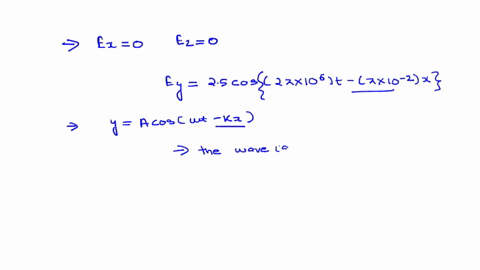 → Ex=0 Ez=0
Ey = 2.5cos{(2π×10⁶)t-(π×10⁻²)x}
→ y = Acos(ωt -Kx)
→ the wave is